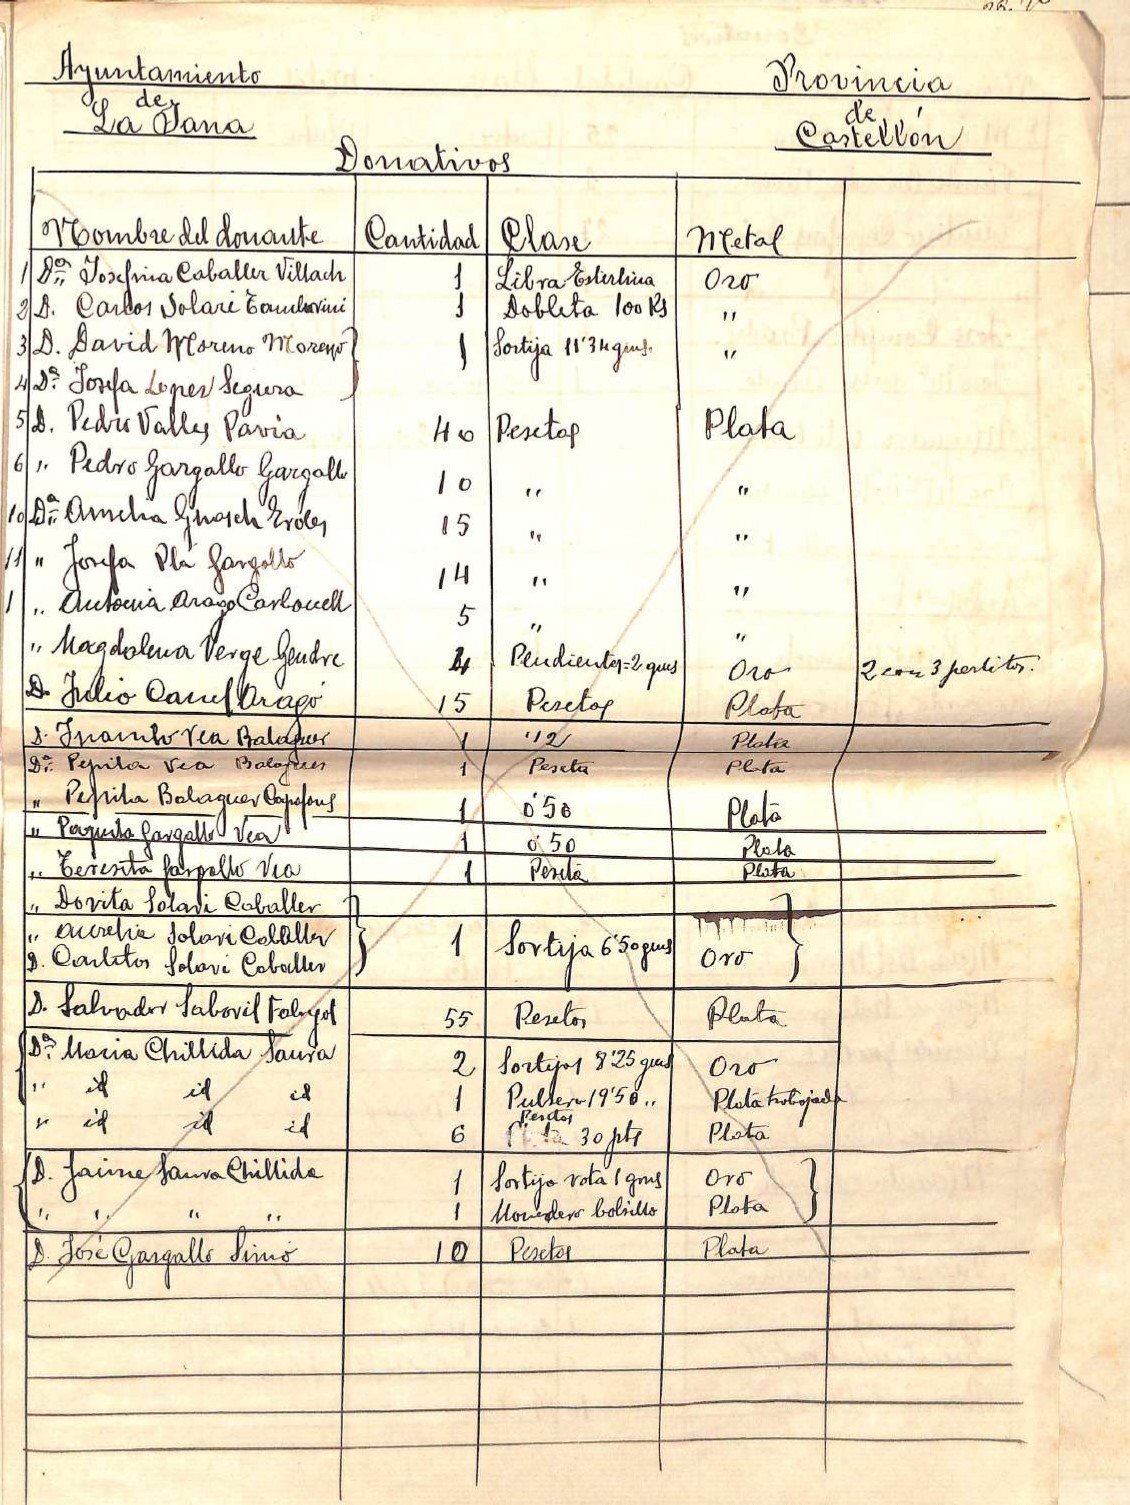 Ayuntamiento
de
La Jana
Provincia
de
Castellón
Donativos
Nombre del donante Cantidad Clase Metal
1 Dª Josefina Caballer Villach 1 Libra Esterlina Oro
2 D. Carlos Solari Tamborini 1 Dobleta 100 Rs "
3 D. David Moreno Moreno 1 Sortija 11'34 gms. "
4 Dª Josefa Lopez Segura
5 D. Pedro Valles Pavia 40 Pesetas Plata
6 " Pedro Gargallo Gargallo 10 " "
10 Dª Amelia Eroles 15 " "
11 " Josefa Plá Gargallo 14 " "
1 " Antonia Arago Carbonell 5 " "
" Magdalena Verge Gendre 4 Pendientes=2 gms Oro 2 con 3 perlitas.
D. Julio Canel Aragó 15 Pesetas Plata
D. Juanito Vea Balaguer 1 "2 Plata
Dª Pepita Vea Balaguer 1 Peseta Plata
" Pepita Balaguer 1 0'50 Plata
" Paquita Gargallo Vea 1 0'50 Plata
" Teresita Gargallo Vea 1 Peseta Plata
" Dorita Solari Caballer
" Aurelia Solari Caballer 1 Sortija 6'50 gms Oro
D. Carlitos Solari Caballer
D. Salvador Saborit Fabregat 55 Pesetas Plata
Dª Maria Chillida Saura 2 Sortijas 8'25 gms Oro
" id id id 1 Pulsera 19'50 " Plata trabajada
" id id id 6 Pesetas 30 pts Plata
D. Jaime Saura Chillida 1 Sortija rota 1 gms Oro
" " " " 1 Monedero bolsillo Plata
D. José Gargallo Simó 10 Pesetas Plata